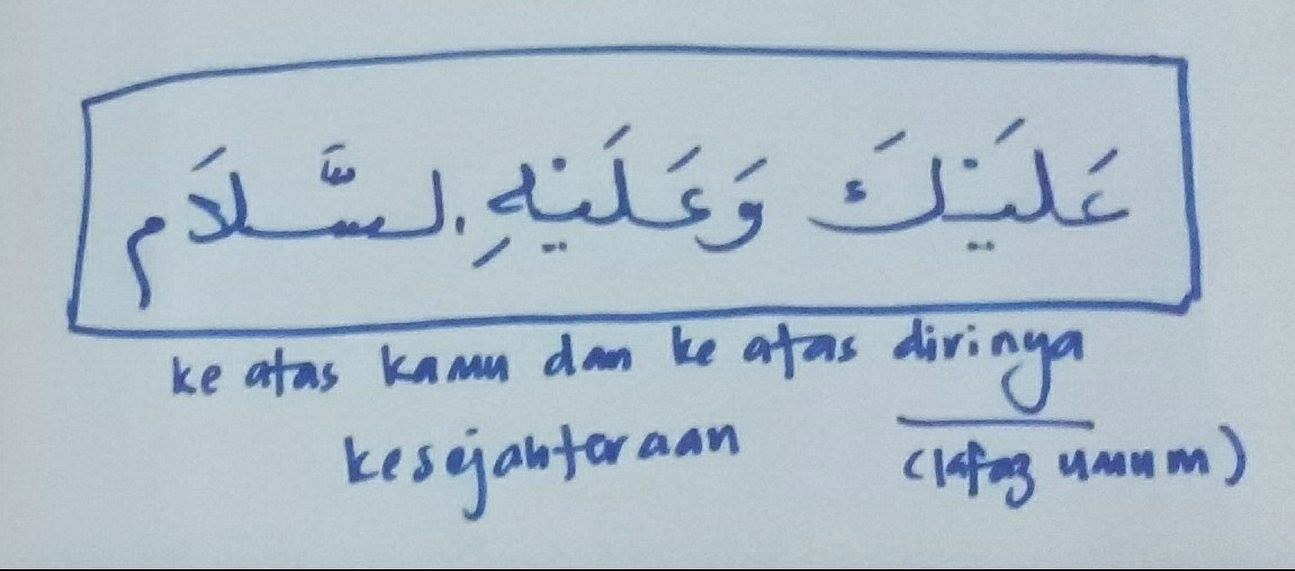 عَلَيْكَ وَعَلَيْهِ السَّلَام
ke atas kamu dan ke atas dirinya
kesejahteraan (lafaz umum)